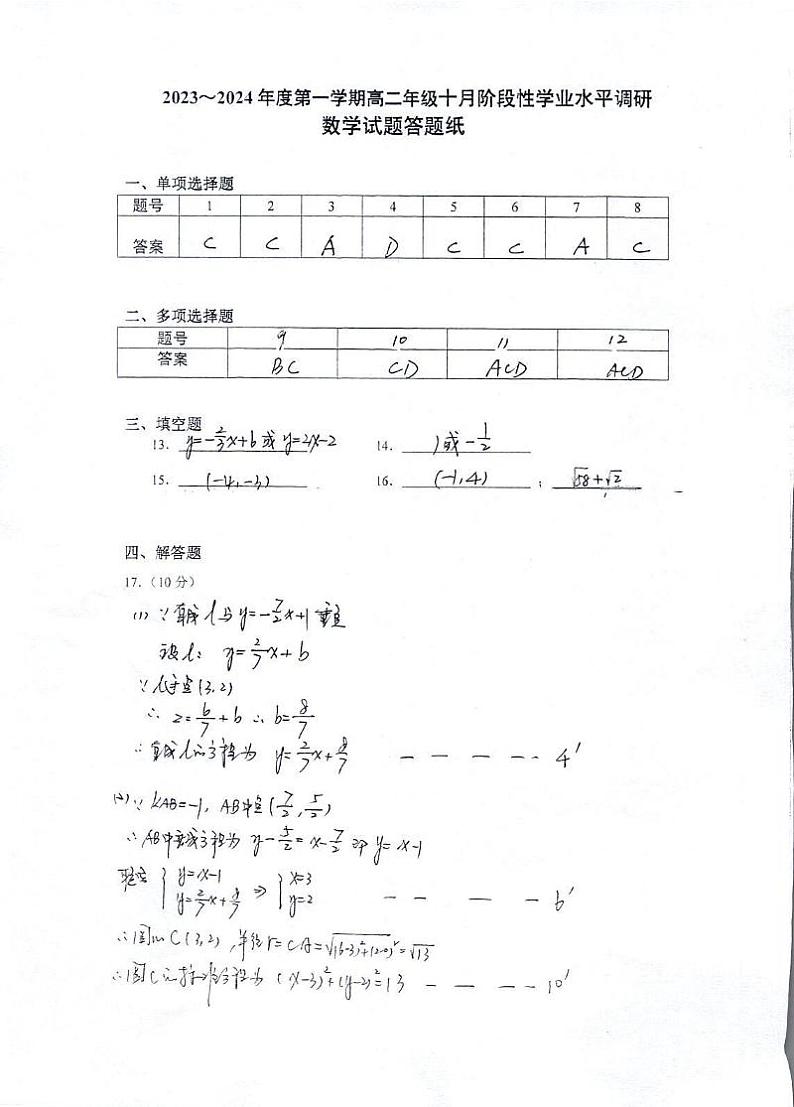 2023～2024年度第一学期高二年级十月阶段性学业水平调研
数学试题答题纸
一、单项选择题
题号 1 2 3 4 5 6 7 8
答案 C C A D C C A C
二、多项选择题
题号 9 10 11 12
答案 BC CD ACD ACD
三、填空题
13. y=-2/3x+b 或 y=2x-2 14. 1或-1/2
15. (-4,-3) 16. (-1,4) ; √58+√2
四、解答题
17.（10分）
(1) ∵直线l与y=-7/2x+1垂直
设l: y=2/7x+b
∵l过点(3,2)
∴ 2=6/7+b ∴b=8/7
∴直线l的方程为 y=2/7x+8/7 — — — — 4'
(2) ∵kAB=-1, AB中点(7/2,5/2)
∴AB中垂线方程为 y-5/2=x-7/2 即 y=x-1
联立 { y=x-1 y=2/7x+8/7 ⇒ { x=3 y=2 — — — — 6'
∴圆心C(3,2), 半径r=CA=√(6-3)²+(2-0)²=√13
∴圆C的标准方程为 (x-3)²+(y-2)²=13 — — — — 10'